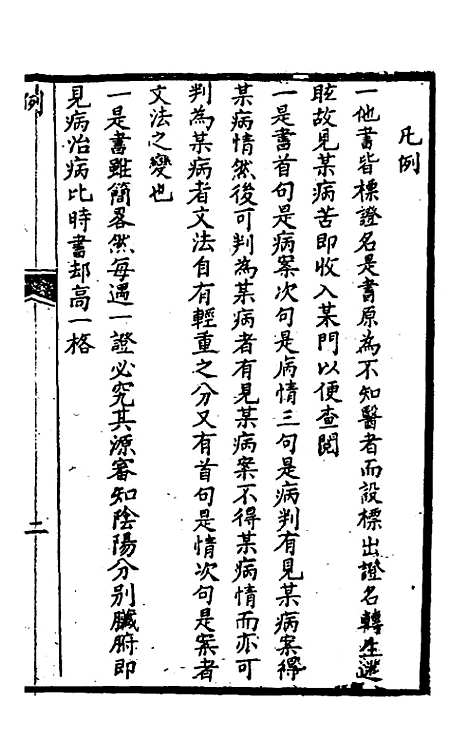 凡例
一他書皆標證名是書原為不知醫者而設標出證名轉生迷
眩故見某病苦即收入某門以便查閱
一是書首句是病案次句是病情三句是病判有見某病案得
某病情然後可判為某病者有見某病案不得某病情而亦可
判為某病者文法自有輕重之分又有首句是情次句是案者
文法之變也
一是書雖簡畧然每遇一證必究其源審知陰陽分别臟腑即
見病治病比時書却高一格
例
二